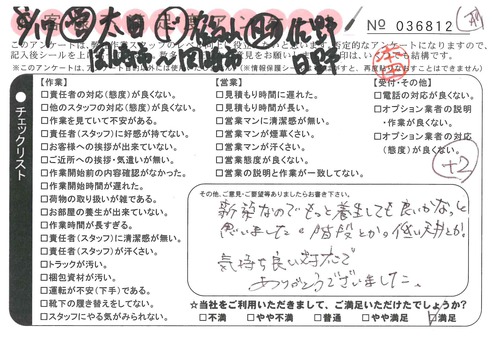 8/17 営 太田 ド 福山 助 佐野
岡崎市〜岡崎市 日野
No 036812
このアンケートは、弊
記入後シールを上
【作業】
□責任者の対応(態度)が良くない。
□他のスタッフの対応(態度)が良くない。
□作業を見ていて不安がある。
□責任者(スタッフ)に好感が持てない。
□お客様への挨拶が出来ていない。
□ご近所への挨拶・気遣いが無い。
□作業開始前の内容確認がなかった。
□作業開始時間が遅れた。
□荷物の取り扱いが雑である。
□お部屋の養生が出来ていない。
□作業時間が長すぎる。
□責任者(スタッフ)に清潔感が無い。
□責任者(スタッフ)が汗くさい。
□トラックが汚い。
□梱包資材が汚い。
□運転が不安(下手)である。
□靴下の履き替えをしてない。
□スタッフにやる気がみられない。
【営業】
□見積もり時間に遅れた。
□見積もり時間が長い。
□営業マンに清潔感が無い。
□営業マンが煙草くさい。
□営業マンが汗くさい。
□営業態度が良くない。
□営業の説明と作業が一致してない。
【受付・その他】
□電話の対応が良くない。
□オプション業者の説明
・作業が良くない。
□オプション業者の対応
(態度)が良くない。
+2
チェックリスト
その他、ご意見・ご要望等ありましたらお書き下さい。
新築なのでもっと養生しても良いかなっと
思いました。階段とか。低い天井とか。
気持ち良い対応で
ありがとうございました。
☆当社をご利用いただきまして、ご満足いただけたでしょうか?
□不満 □やや不満 □普通 □やや満足 □満足